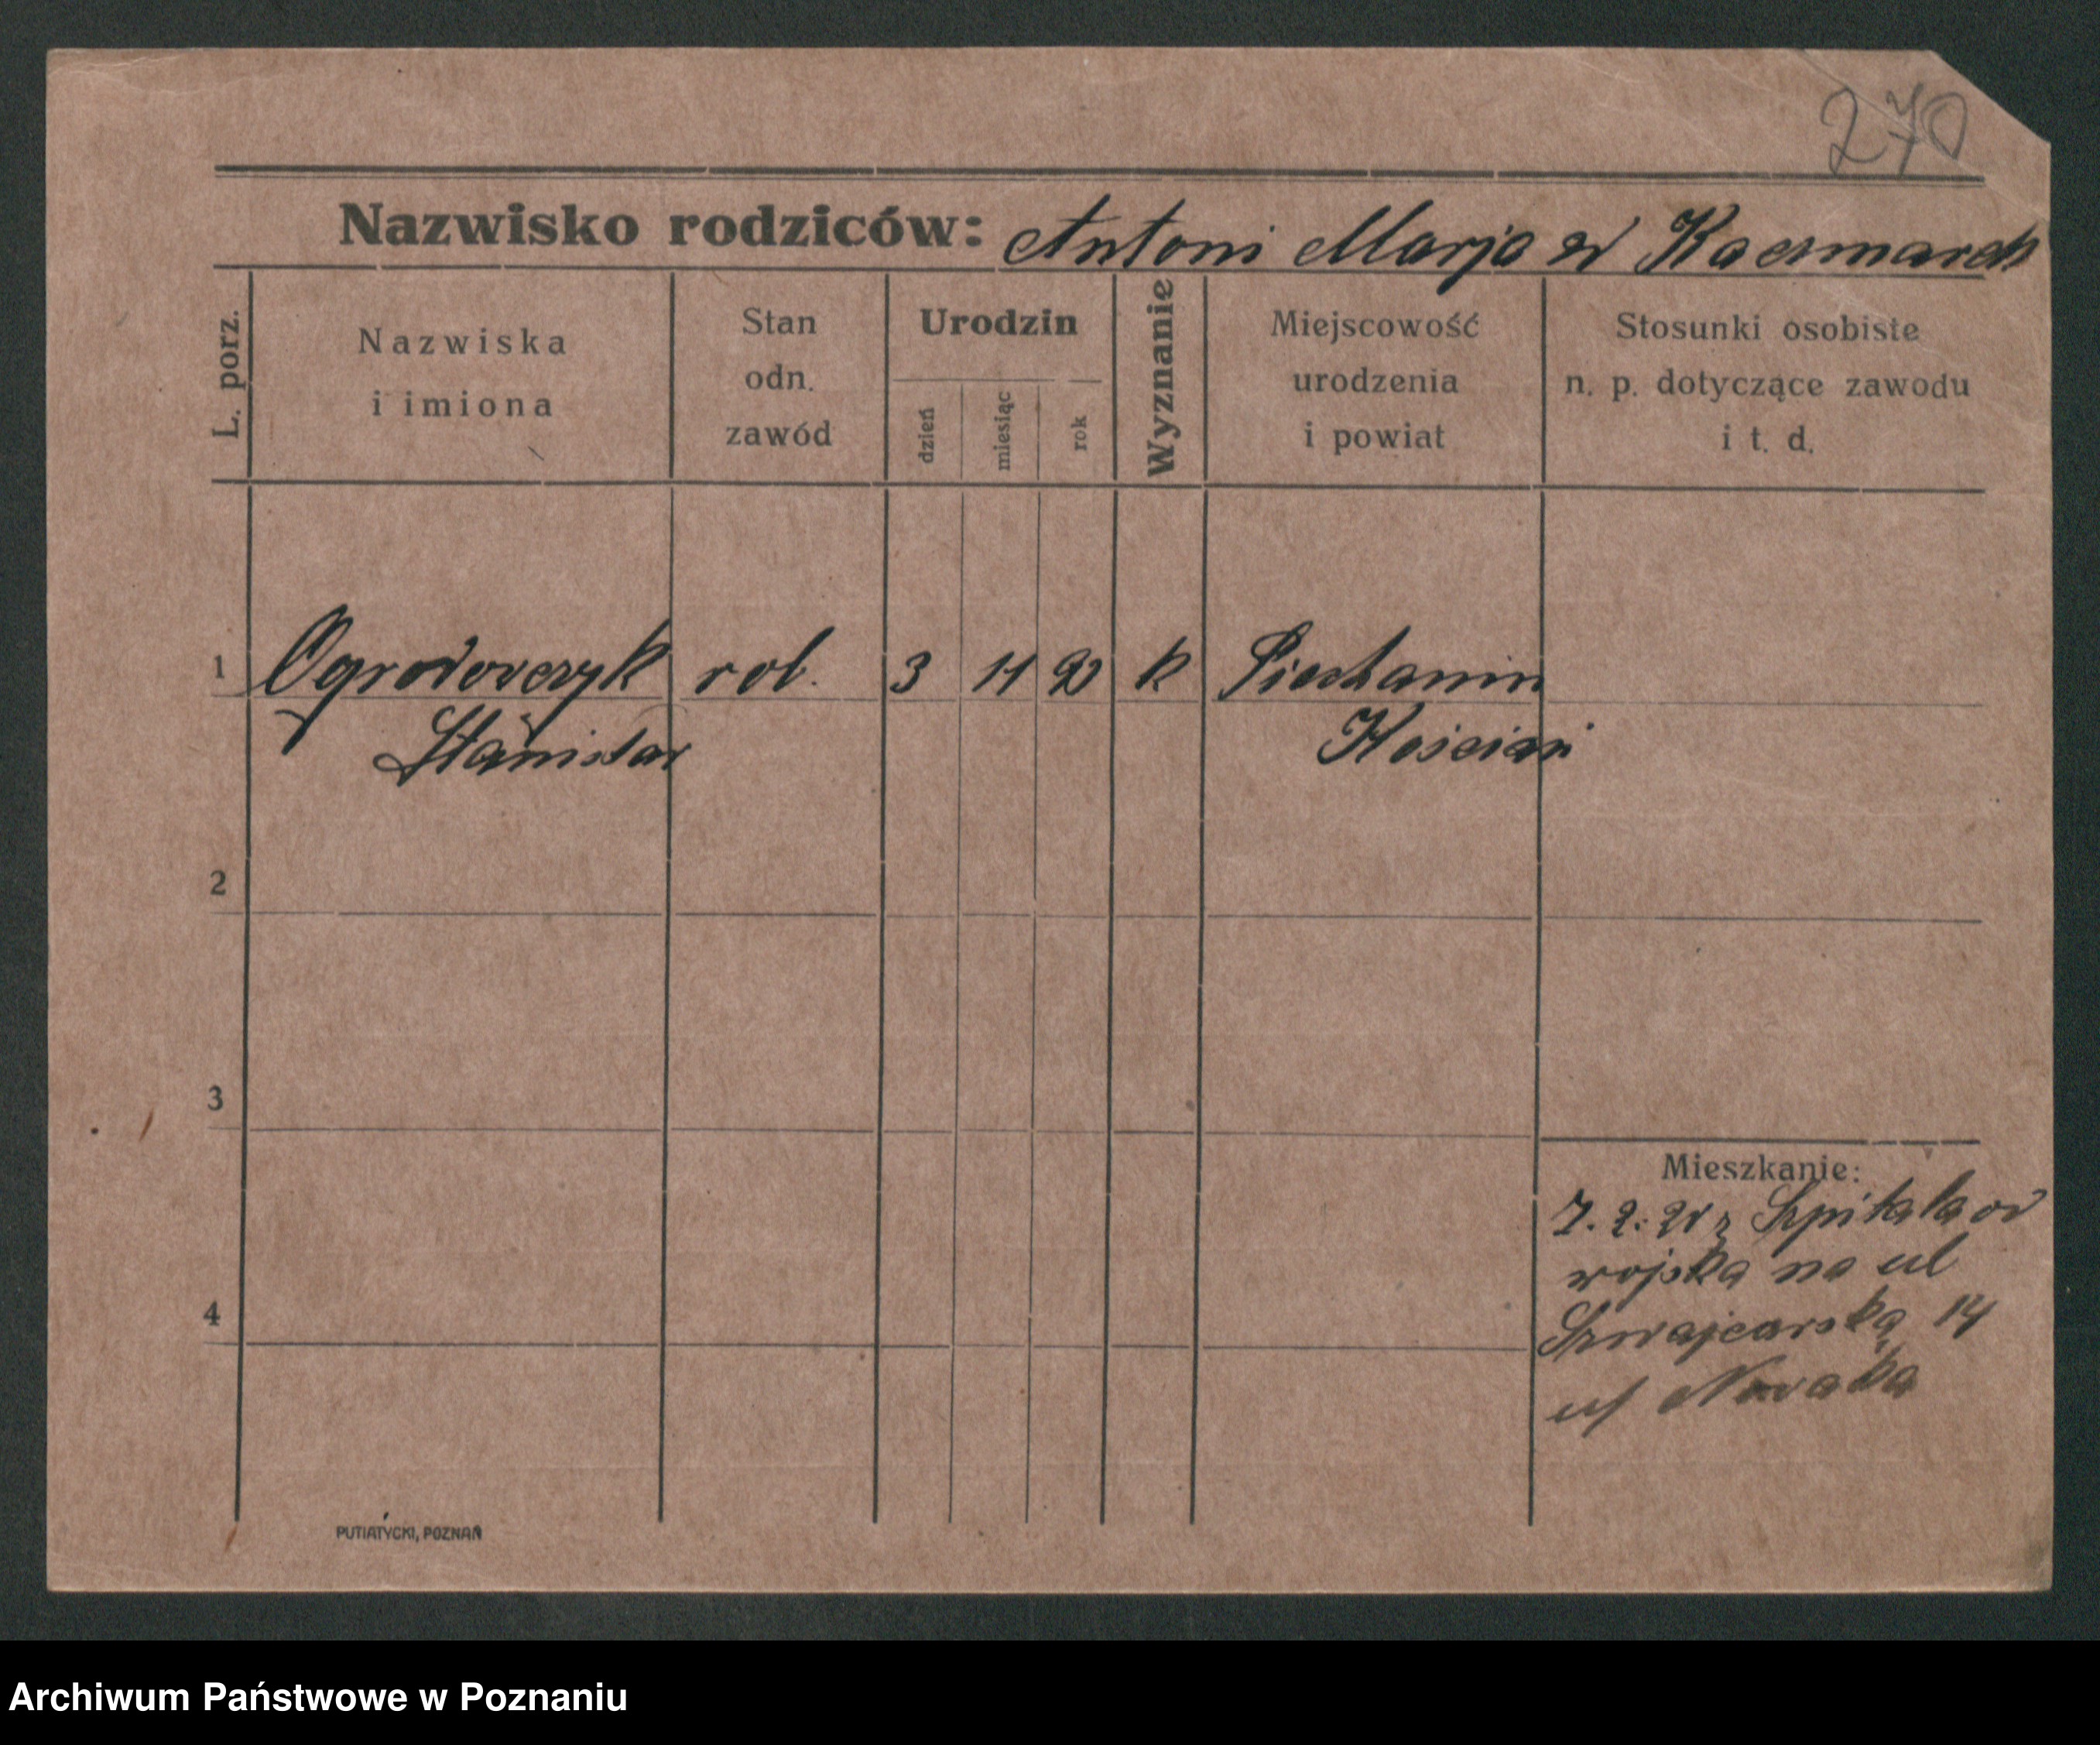 270
Nazwisko rodziców: Antoni Marja z d Kaczmarek
L. porz.
Nazwiska
i imiona
Stan
odn.
zawód
Urodzin
dzień
miesiąc
rok
Wyznanie
Miejscowość
urodzenia
i powiat
Stosunki osobiste
n. p. dotyczące zawodu
i t. d.
1 Ogrodowczyk rob. 3 11 k Piechanin
Stanisław Kościan
2
3
4
Mieszkanie:
7. 2. 21 z Szpitala od
wojska na ul
Szwajcarską 14
Nowaka
PUTIATYCKI, POZNAŃ
Archiwum Państwowe w Poznaniu